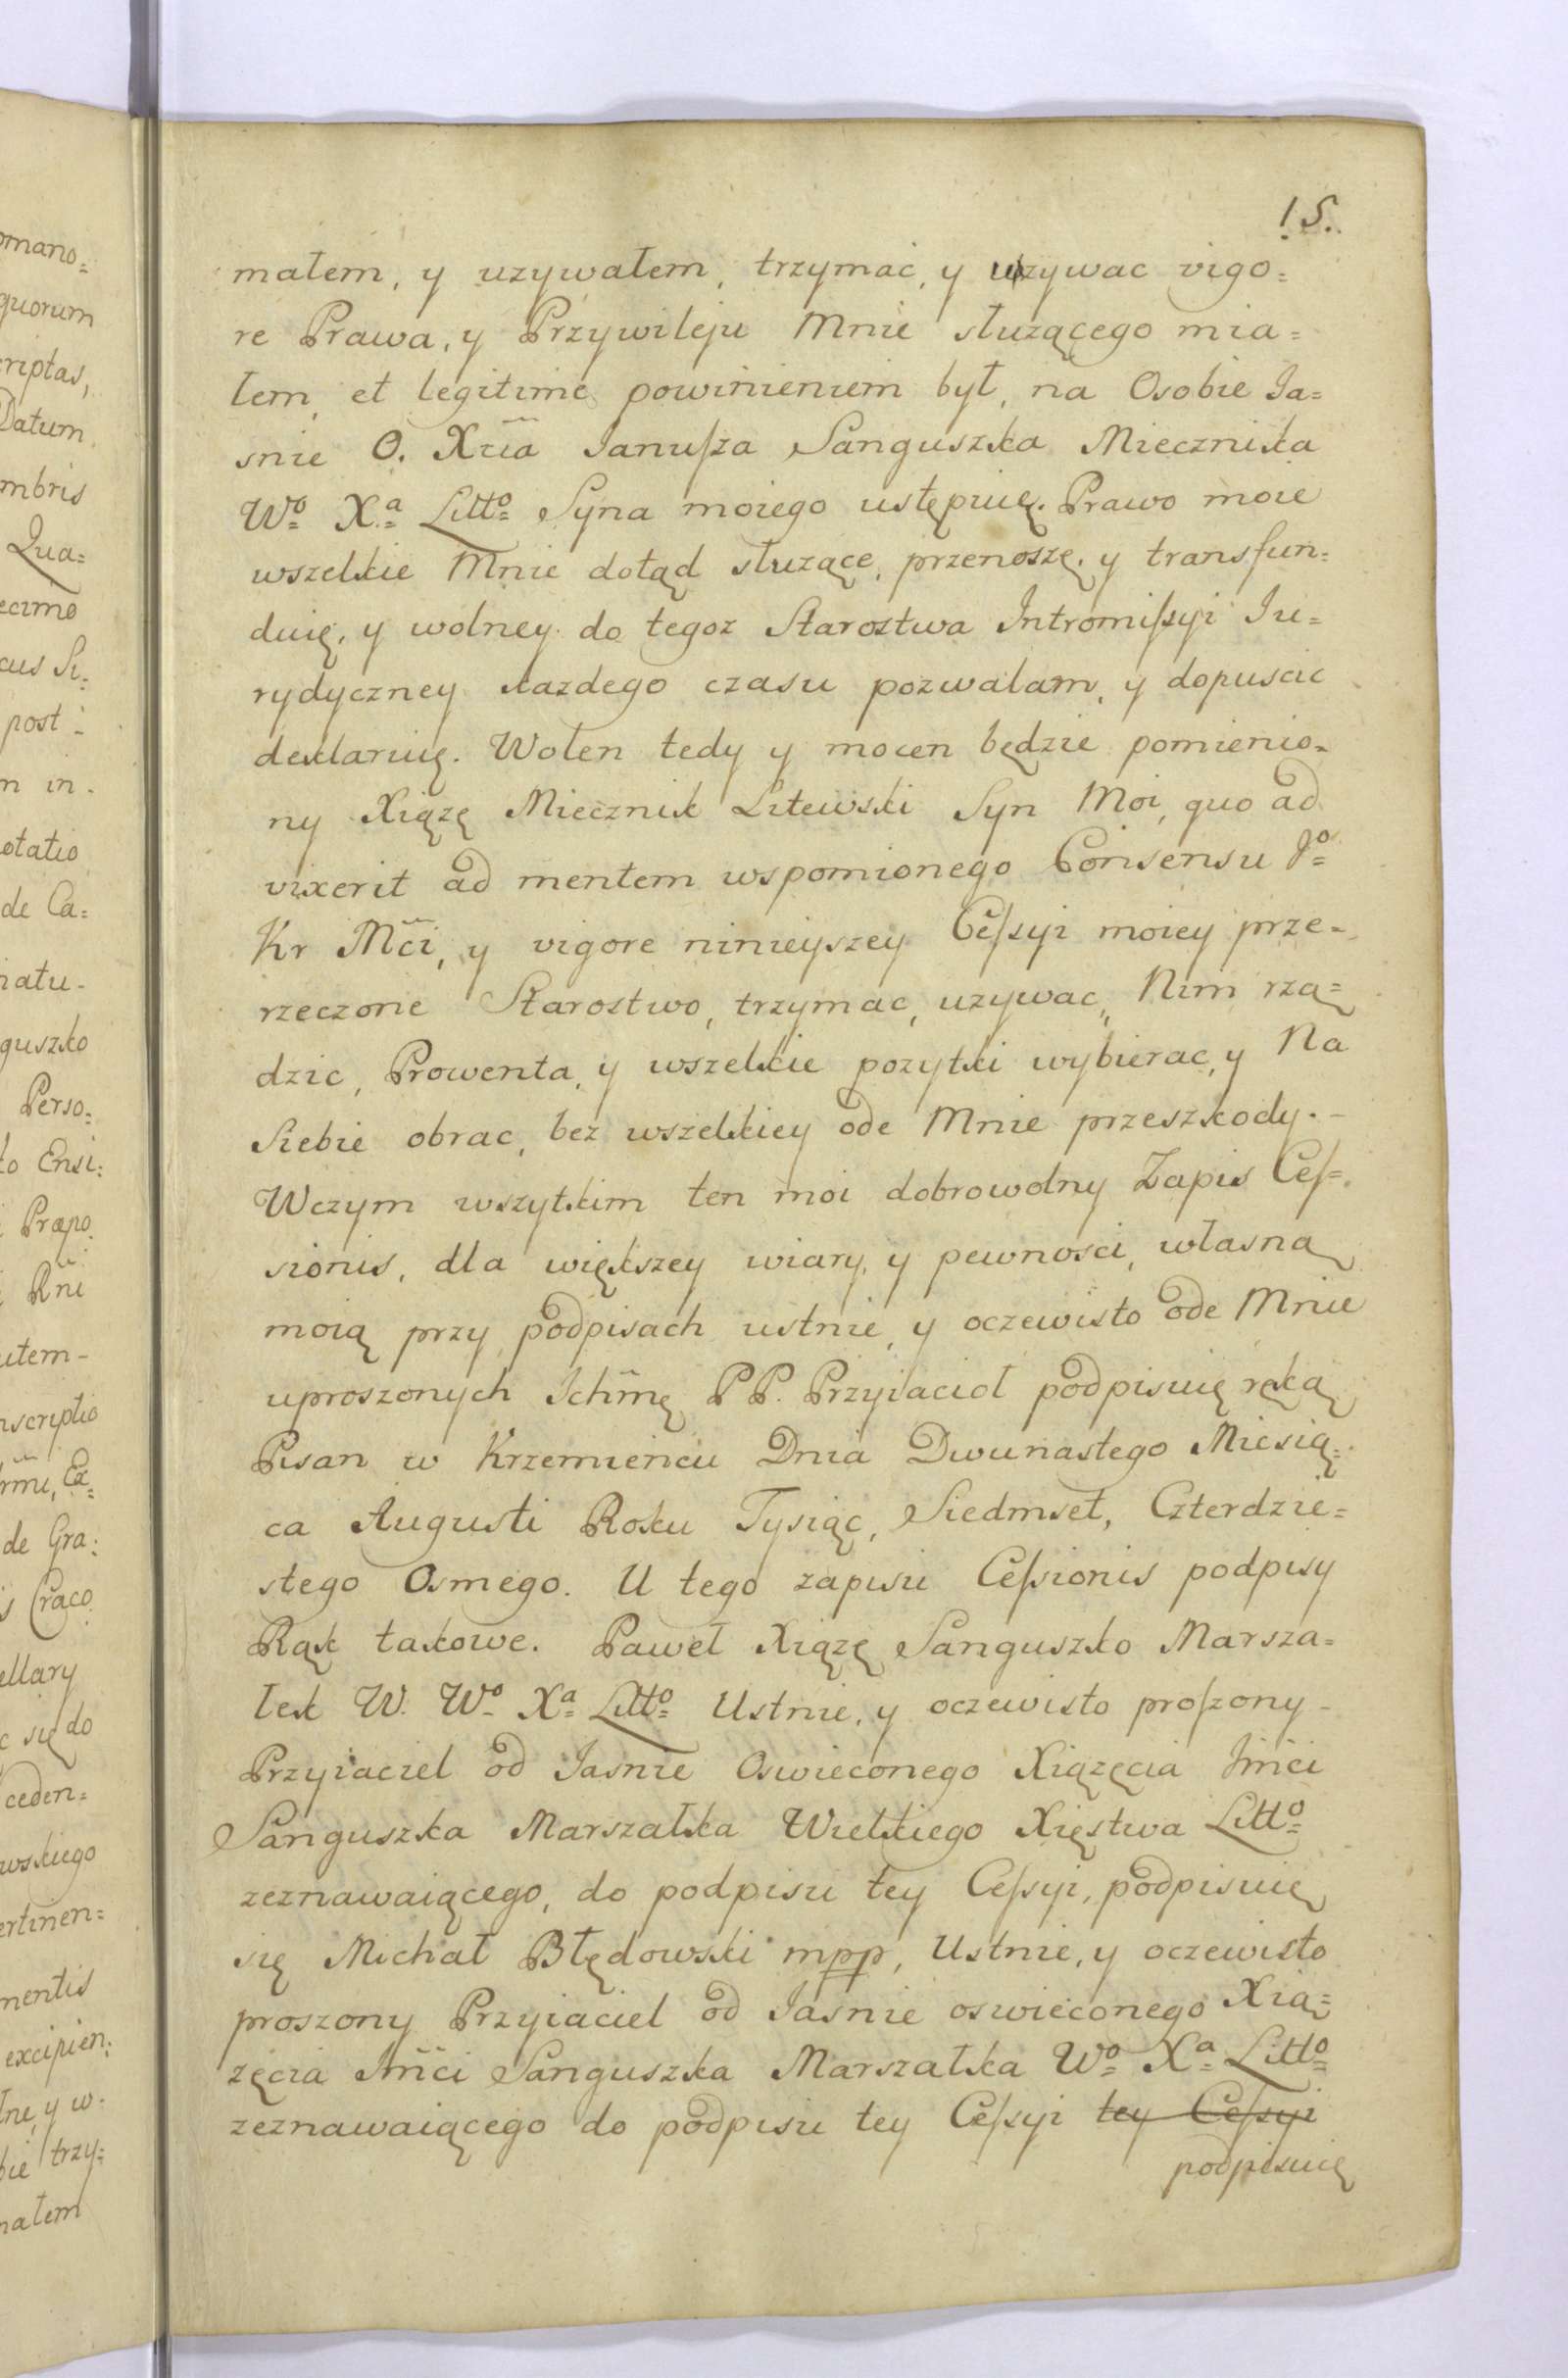 omano=
quorum
criptas,
Datum
mbris
Qua=
ecimo
cus Si=
post
m in
otatio
de Ca=
natu-
guszko
Perso=
to Ensi=
Præpo
Rni
utem-
nscriptio
de Gra:
Craco
ellary
c się do
ceden=
wskiego
ertinen=
mentis
excipien:
lne, y w
bie trzy=
małem
15.
małem, y uzywałem, trzymac, y uzywac vigo=
re Prawa, y Przywileju Mnie służącego mia=
łem, et legitime powinieniem był, na Osobie Ja=
snie O. Xcia Januſza Sanguszka Miecznika
Wº Xª Littº Syna moiego ustępuię. Prawo moie
wszelkie Mnie dotąd służące, przenoszę, y transfun=
duię, y wolney do tegoz Starostwa Intromiſsyi Ju=
rydyczney kazdego czasu pozwalam, y dopuscic
deklaruię. Wolen tedy y mocen będzie pomienio=
ny Xiązę Miecznik Litewski Syn Moi, quo ad
vixerit ad mentem wspomionego Consensu Jº
Kr Mci, y vigore ninieyszey Ceſsyi moiey prze=
rzeczone Starostwo, trzymac, uzywac, Nim rzą=
dzic, Prowenta, y wszelkie pozytki wybierac, y Na
Siebie obrac, bez wszelkiey ode Mnie przeszkody.-
Wczym wszytkim ten moi dobrowolny Zapis Ceſ=
sionis, dla większey wiary, y pewnosci, własną
moią przy podpisach ustnie, y oczewisto ode Mnie
uproszonych Ichmę PP. Przyiaciol podpisuię ręką
Pisan w Krzemieńcu Dnia Dwunastego Miesią=
ca Augusti Roku Tysiąc, Siedmset, Czterdzie=
stego Osmego. U tego zapisu Ceſsionis podpisy
Rąk takowe. Paweł Xiązę Sanguszko Marsza=
łek W. Wº Xª Littº Ustnie, y oczewisto proſzony-
Przyiaciel od Jasnie Oswieconego Xiązęcia Jmci
Sanguszka Marszałka Wielkiego Xięstwa Littº
zeznawaiącego, do podpisu tey Ceſsyi, podpisuię
się Michał Błędowski mpp, Ustnie, y oczewisto
proszony Przyiaciel od Jasnie oswieconego Xią=
zęcia Jmci Sanguszka Marszałka Wº Xª Littº
zeznawaiącego do podpisu tey Ceſsyi tey Ceſsyi
podpisuię